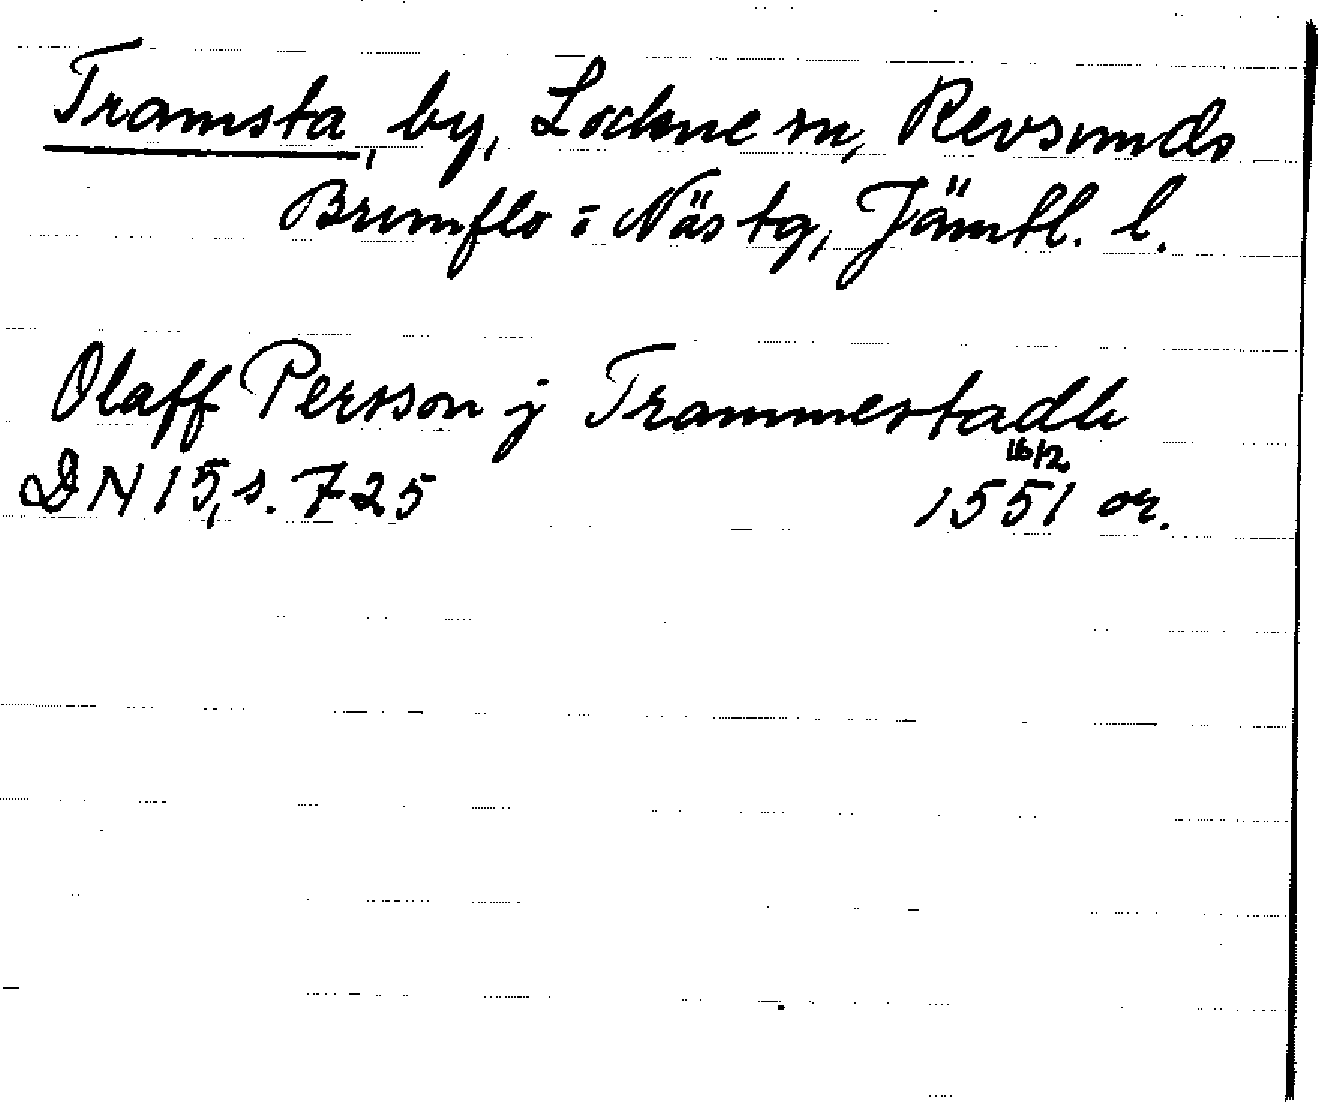 Tramsta, by, Lockne sn, Revsunds
Brunflo o Näs tg, Jämtl. l.
Olaff Persson j Trammestadh
16/2
DN 15, s. 725 1551 or.